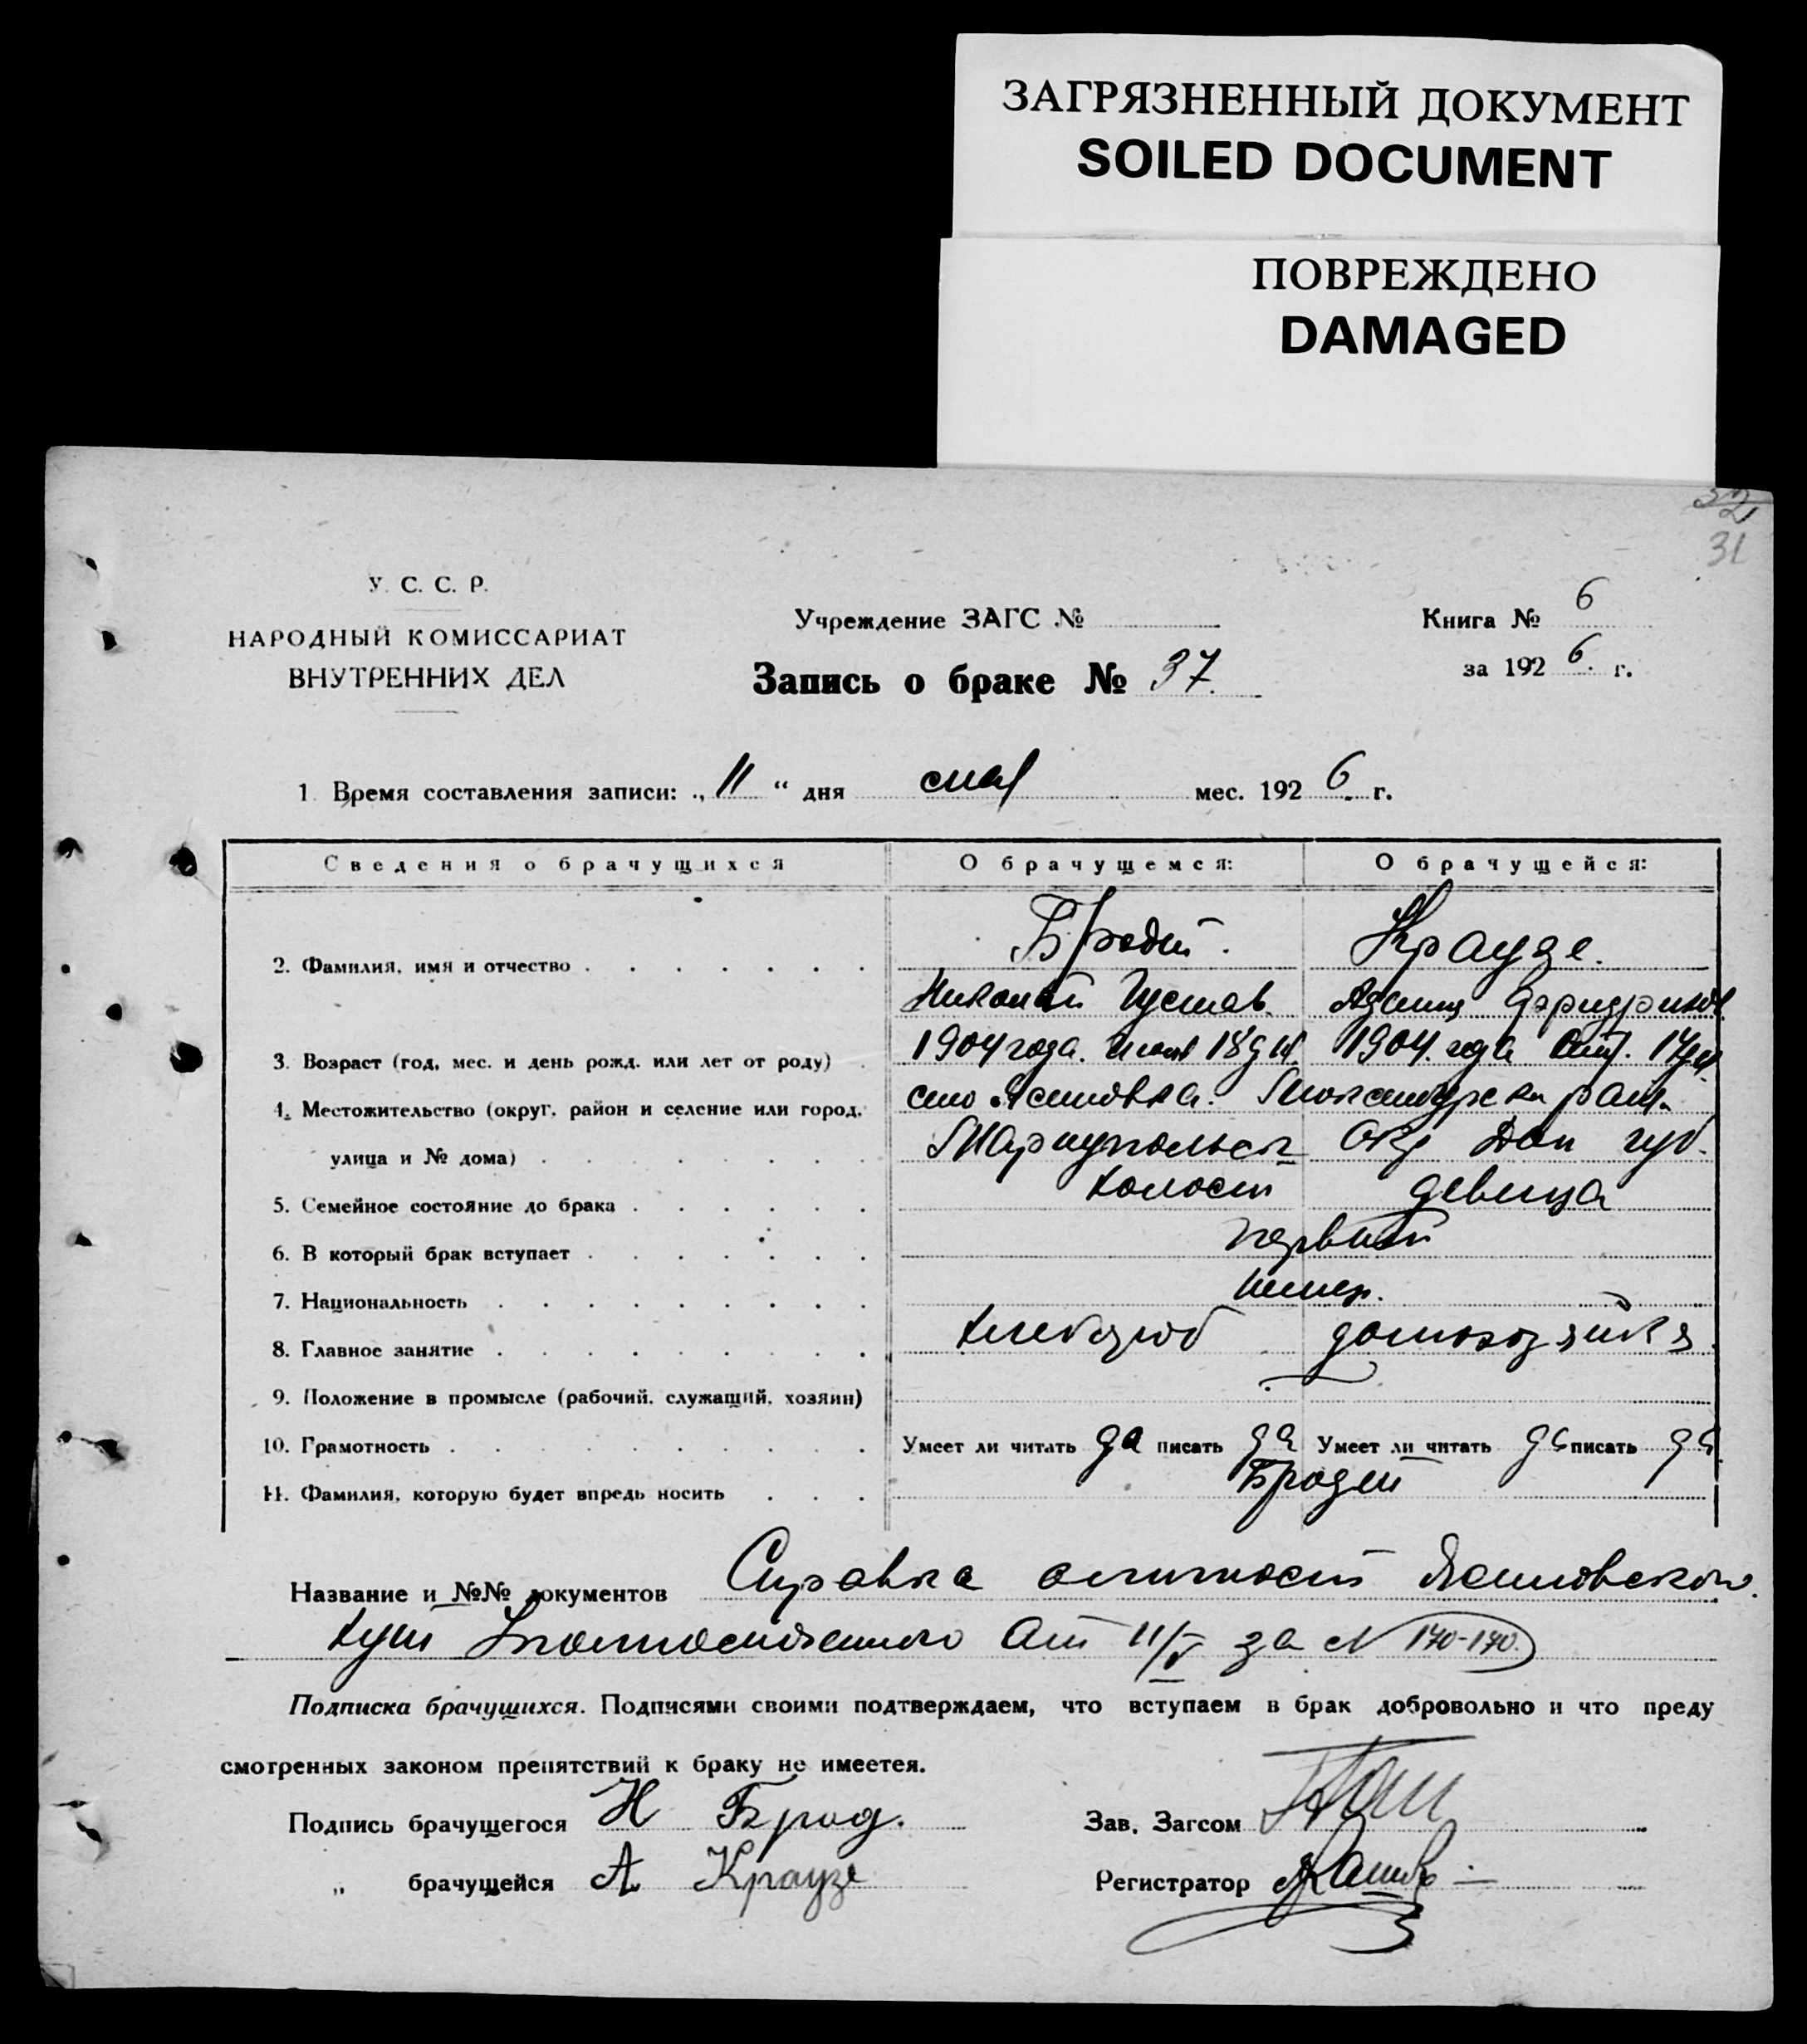 ЗАГРЯЗНЕННЫЙ ДОКУМЕНТ
SOILED DOCUMENT
ПОВРЕЖДЕНО
DAMAGED
32
31
У. С. С. Р.
НАРОДНЫЙ КОМИССАРИАТ
ВНУТРЕННИХ ДЕЛ
Учреждение ЗАГС №
Запись о браке № 37.
Книга № 6
за 192 6. г.
1. Время составления записи: „ 11 “ дня мая мес. 192 6 г.
Сведения о брачущихся О брачущемся: О брачущейся:
2. Фамилия, имя и отчество Бродт. Краузе.
Николай Густав.
3. Возраст (год, мес. и день рожд. или лет от роду) 1904 года. 18 дн. 1904. года
4. Местожительство (округ, район и селение или город, село рай.
улица и № дома) Мариупольск Окр Дон губ.
5. Семейное состояние до брака холост девица
6. В который брак вступает первый
7. Национальность немец.
8. Главное занятие хлебороб домохозяйка
9. Положение в промысле (рабочий, служащий, хозяин)
10. Грамотность Умеет ли читать да писать да Умеет ли читать да писать да
11. Фамилия, которую будет впредь носить
Название и №№ документов Справка
от 11/V за № 170-170.
Подписка брачущихся. Подписями своими подтверждаем, что вступаем в брак добровольно и что преду
смотренных законом препятствий к браку не имеется.
Подпись брачущегося Н Брод. Зав. Загсом
„ брачущейся А Краузе Регистратор